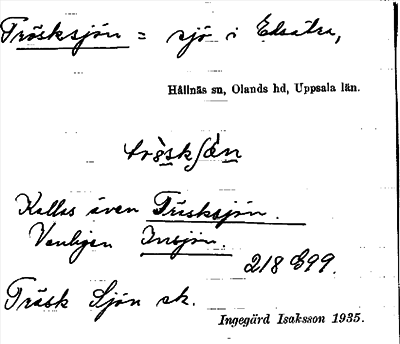 Träsksjön = sjö i Edsätra,
Hållnäs sn, Olands hd, Uppsala län.
Kallas även Träsksjön.
Vanligen Insjön.
218 E99.
Träsk Sjön ek.
Ingegärd Isaksson 1935.